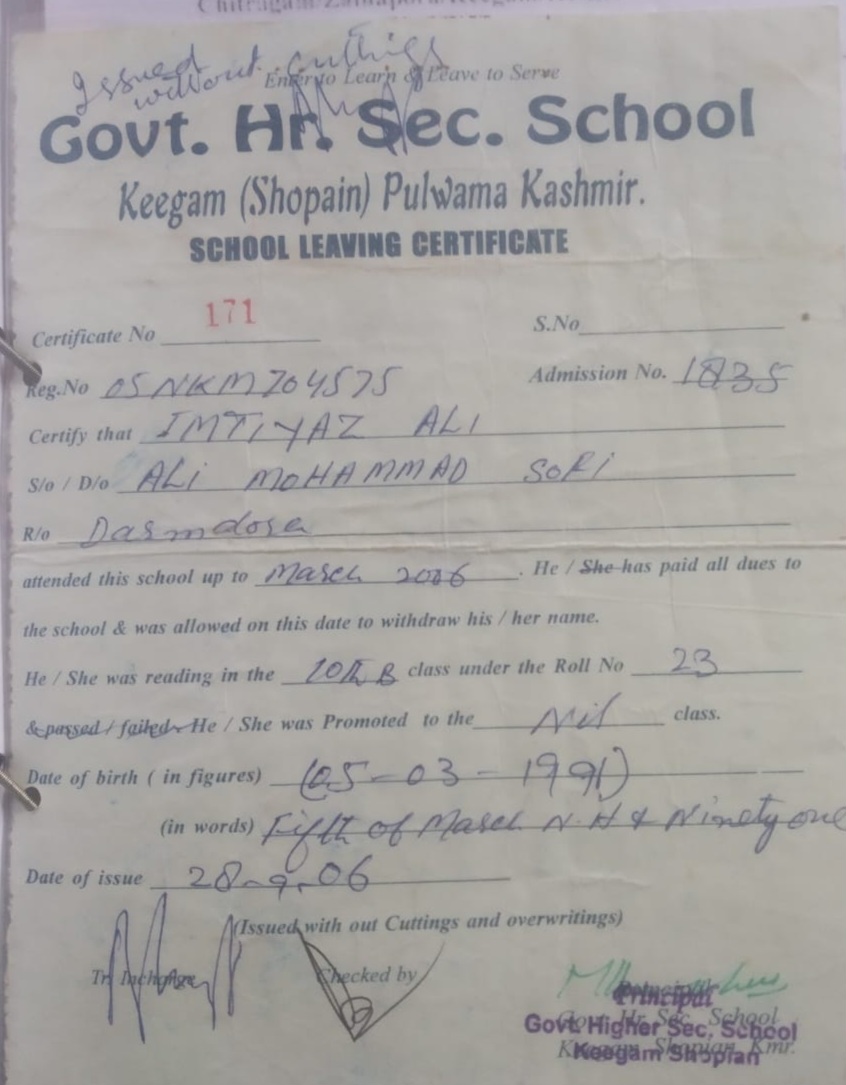 Issued without Cuttings
Enter to Learn & Leave to Serve
Govt. Hr. Sec. School
Keegam (Shopain) Pulwama Kashmir.
SCHOOL LEAVING CERTIFICATE
Certificate No 171 S.No
Reg.No 05NKM704575 Admission No. 1835
Certify that IMTIYAZ ALI
S/o / D/o ALI MOHAMMAD SOFI
R/o Darmdora
attended this school up to March 2006. He / She has paid all dues to
the school & was allowed on this date to withdraw his / her name.
He / She was reading in the 10th B class under the Roll No 23
& passed / failed He / She was Promoted to the Nil class.
Date of birth ( in figures) (05-03-1991)
(in words) Fifth of March N.H & Ninety one
Date of issue 28-9-06
(Issued with out Cuttings and overwritings)
Tr. Incharge Checked by Principal
Govt. Hr. Sec. School
Keegam Shopian Kmr.
Principal
Govt. Higher Sec. School
Keegam Shopian